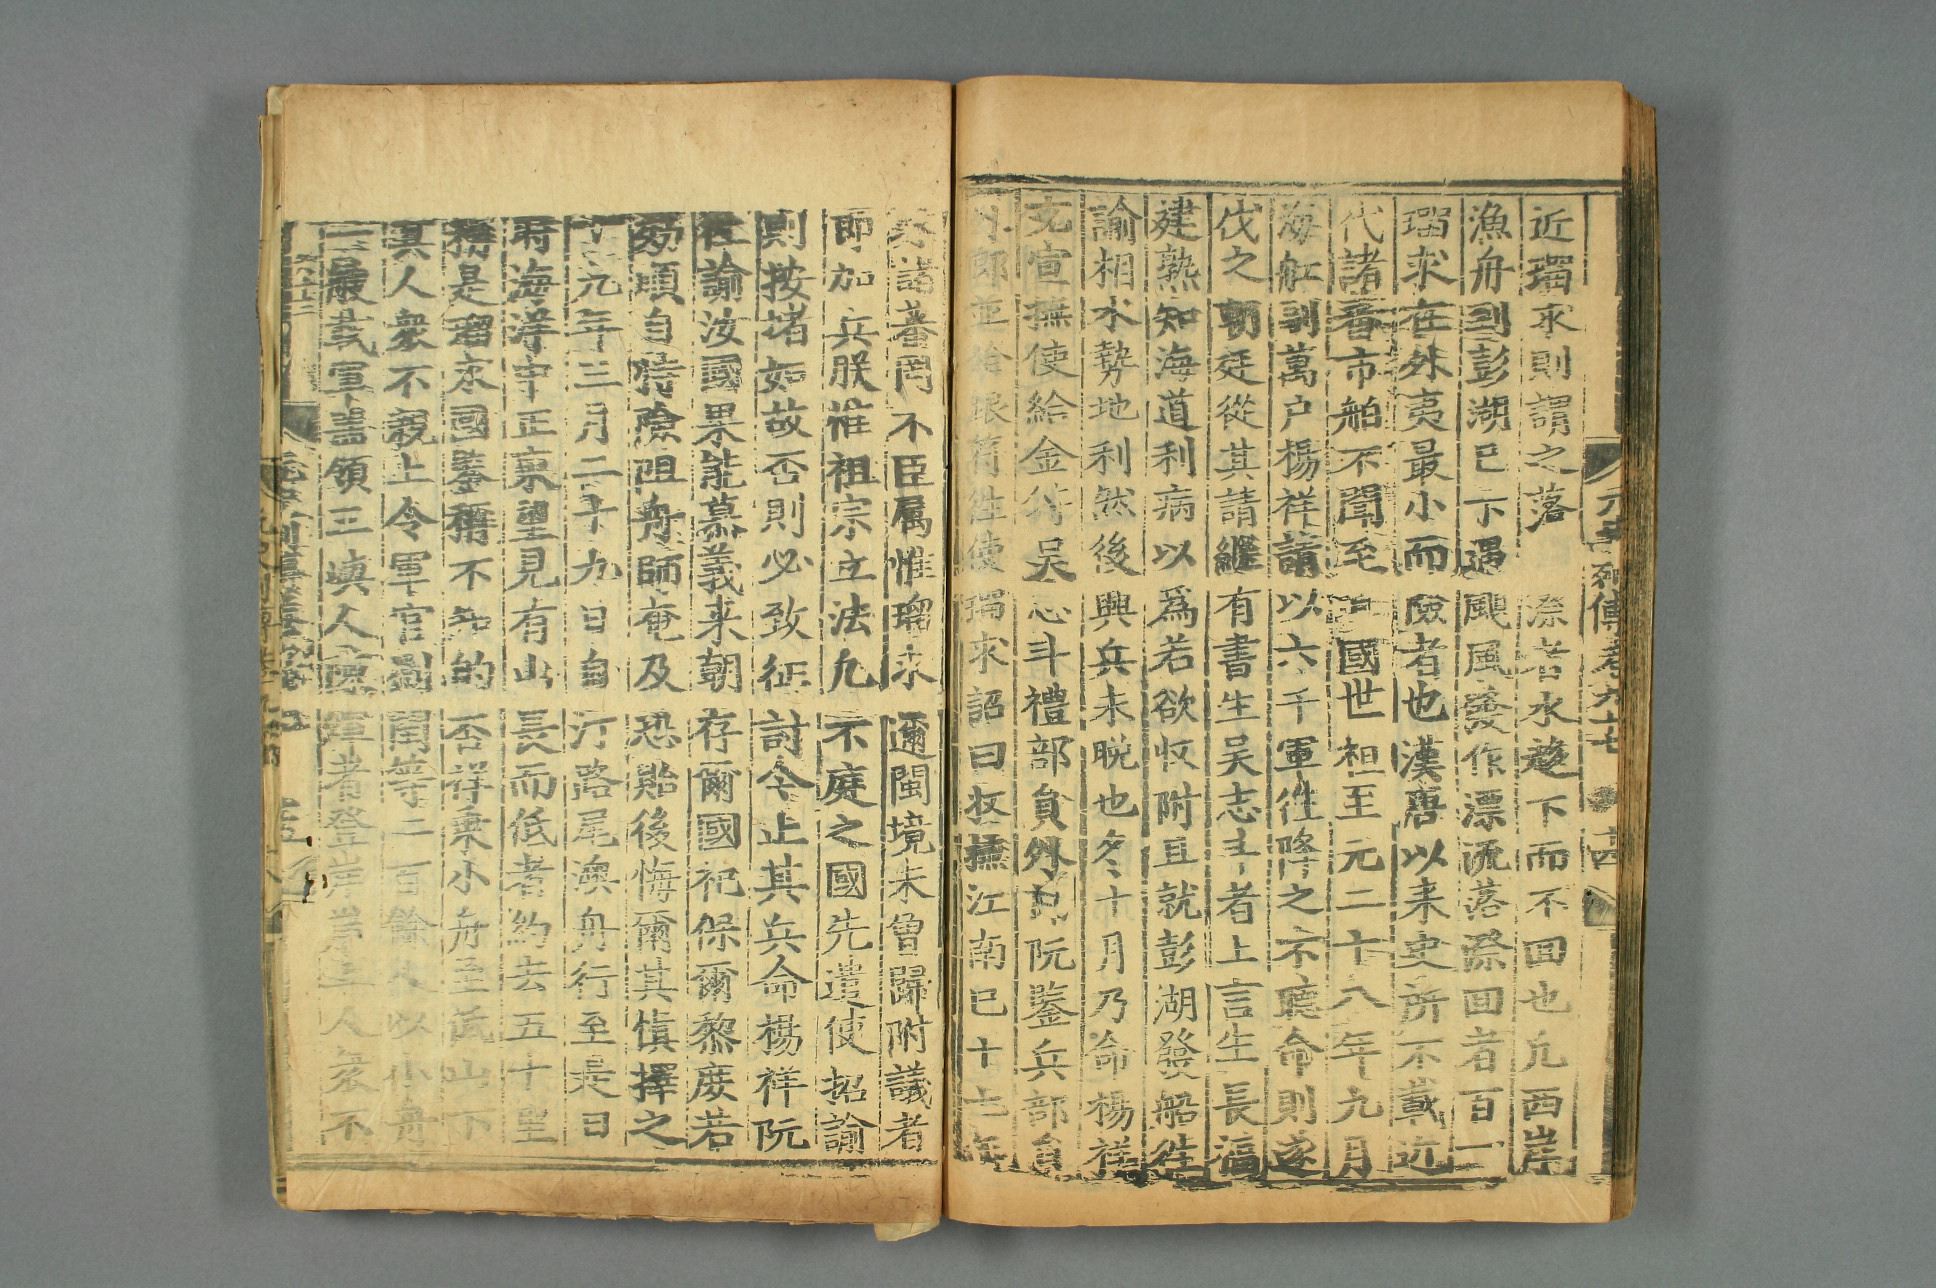 近瑠求則謂之落漈漈者水趨下而不回也凡西岸
漁舟到彭湖已下遇颶風發作漂流落漈回者百一
瑠求在外夷最小而險者也漢唐以来史所不載近
代諸番市舶不聞至其國世祖至元二十八年九月
海舡副萬户楊祥請以六千軍徃降之不聽命則遂
伐之朝廷從其請継有書生吴志斗者上言生長福
建熟知海道利病以爲若欲收附且就彭湖發船徃
諭相水勢地利然後興兵未晚也冬十月乃命楊祥
充宣撫使給金符吴志斗禮部負外郎阮鑒兵部負
外郎並給銀符徃使瑠求詔曰收撫江南已十七年
海外諸番罔不臣属惟瑠求邇閩境未曾歸附議者
即加兵朕惟祖宗立法凡不庭之國先遣使招諭
則按堵如故否則必致征討今止其兵命楊祥阮
徃諭汝國果能慕義来朝存爾國祀保爾黎庻若
効順自恃險阻舟師奄及恐貽後悔爾其慎擇之
九年三月二十九日自汀路尾澳舟行至是日
時海洋中正東望見有山長而低者約去五十里
稱是瑠求國鑒稱不知的否祥乗小舟至低山下
其人衆不親上令軍官劉閏等二百餘人以小舟
領三嶼人陳煇者登岸岸上人衆不
元史列傳卷九十七 十四